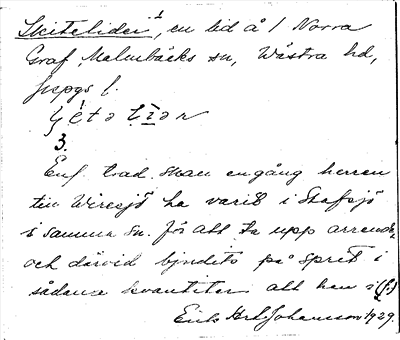 Skitelider 1, en lid å 1 Norra
Graf, Malmbäcks sn, Wästra hd,
Jnkpgs l.
3.
Enl. trad. skall en gång herren
till Wiresjö ha varit i Stafsjö
i samma sn. för att ta upp arrende,
och därvid bjudits på sprit i
sådana kvantiteter att han i (f.)
Erik Johansson 1929.